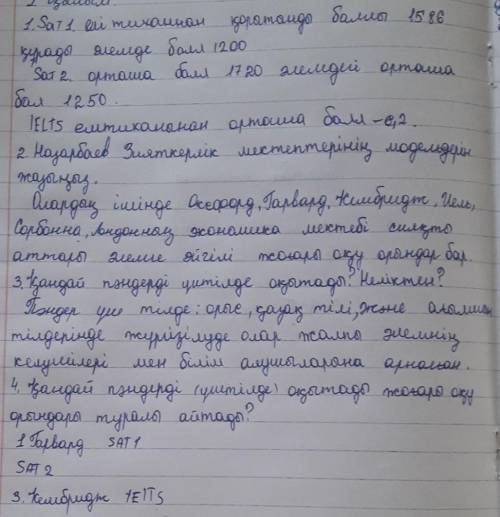 1. SAT 1 емтиханнан қорытанды баллы 1586
құрады әлемде балл 1200
SAT 2. орташа балл 1720 әлемдегі орташа
бал 1250.
IELTS емтиханынан орташа балл - 6,2.
2. Назарбаев Зияткерлік мектептерінің модемдерін
жазыңыз.
Олардың ішінде Оксфорд, Гарвард, Кембридж, Йель,
Сорбонна, Лондонның экономика мектебі сияқты
аттары әлемге әйгілі жоғары оқу орындар бар.
3. Қандай пәндерді үштілде оқытады? Неліктен?
Пәндер үш тілде: орыс, қазақ тілі, және ағылшын
тілдерінде жүргізілуде олар жалпы әлемнің
келушілері мен білім алушыларына арналған.
4. Қандай пәндерді (үштілде) оқытады жоғары оқу
орындары туралы айтады?
1 Гарвард SAT 1
SAT 2
3. Кембридж IELTS